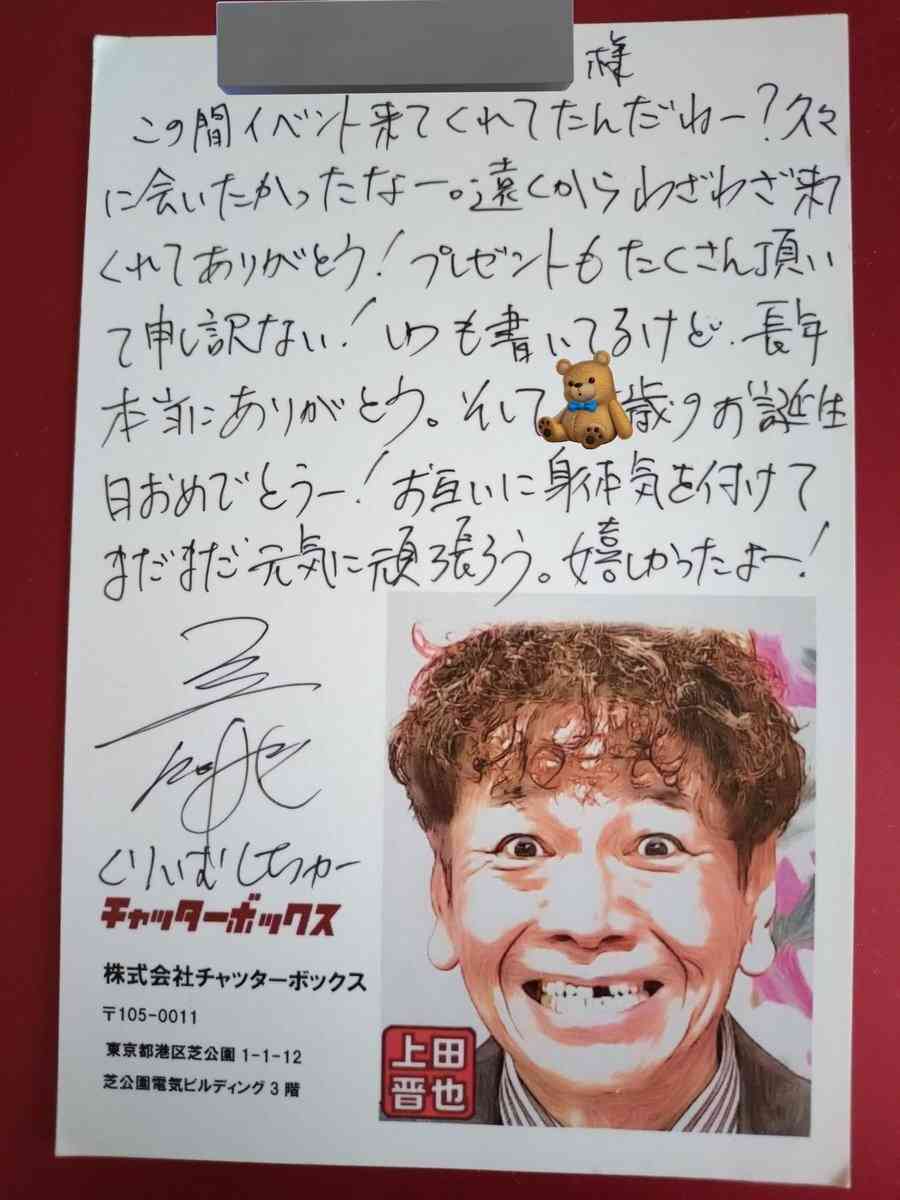 様
この間イベント来てくれてたんだねー?久々
に会いたかったなー。遠くからわざわざ来て
くれてありがとう!プレゼントもたくさん頂い
て申し訳ない!いつも書いてるけど、長年
本当にありがとう。そして歳のお誕生
日おめでとうー!お互いに身体気を付けて
まだまだ元気に頑張ろう。嬉しかったよー!
くりぃむしちゅー
チャッターボックス
株式会社チャッターボックス
〒105-0011
東京都港区芝公園 1-1-12
芝公園電気ビルディング 3 階
上田
晋也